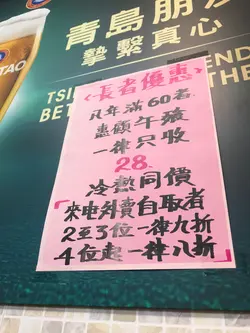 青島朋
摯繫真心
TAO
TSI
END
BET
<長者優惠>
凡年滿60者
惠顧午飯
一律只收
28.
冷熱同價
來电外賣自取者
2至3位一律九折
4位起一律八折